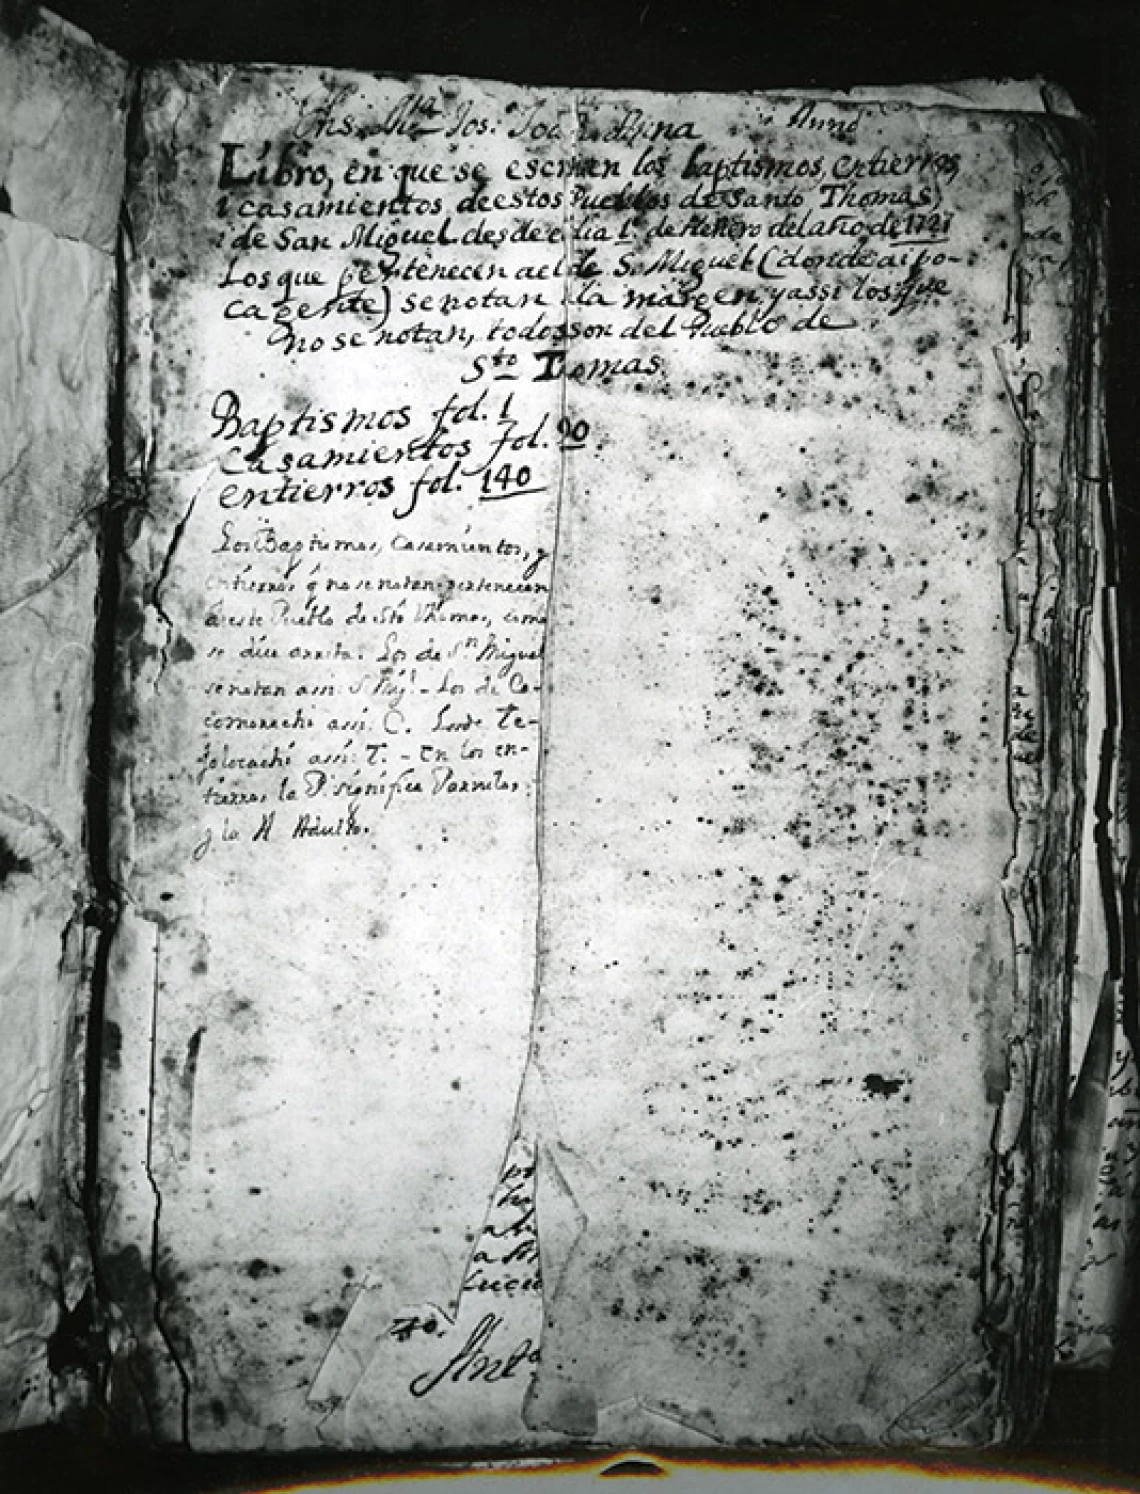 Jos. Joach. Anna
Libro, en que se escriven los baptismos, entierros,
i casamientos, de estos Pueblos de Santo Thomas,
i de San Miguel desde el dia 1º de Henero del año de 1721
Los que pertenecen a el de S. Miguel (donde ai po-
ca gente) se notan a la margen, y assi los que
no se notan, todos son del Pueblo de
Sto Tomas.
Baptismos fol. 1
Casamientos fol. 90.
entierros fol. 140
Los Baptismos, Casamientos, y
entierros q no se notan pertenecen
a este Pueblo de Sto Thomas, como
se dice arriba. Los de Sn Miguel
se notan assi: S. Migl. - Los de Co-
comorachi assi: C. Los de Te-
jolocachi assi: T. - En los en-
tierros la P. significa Parvulos;
y la A Adulto.